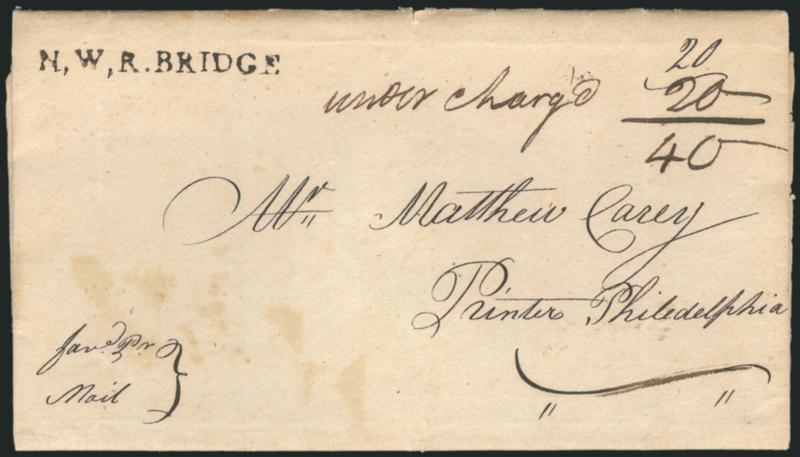 N,W,R.BRIDGE
under Charg'd
20
20
40
Mr Matthew Carey
Printer Philedelphia
Favd Pr
Mail